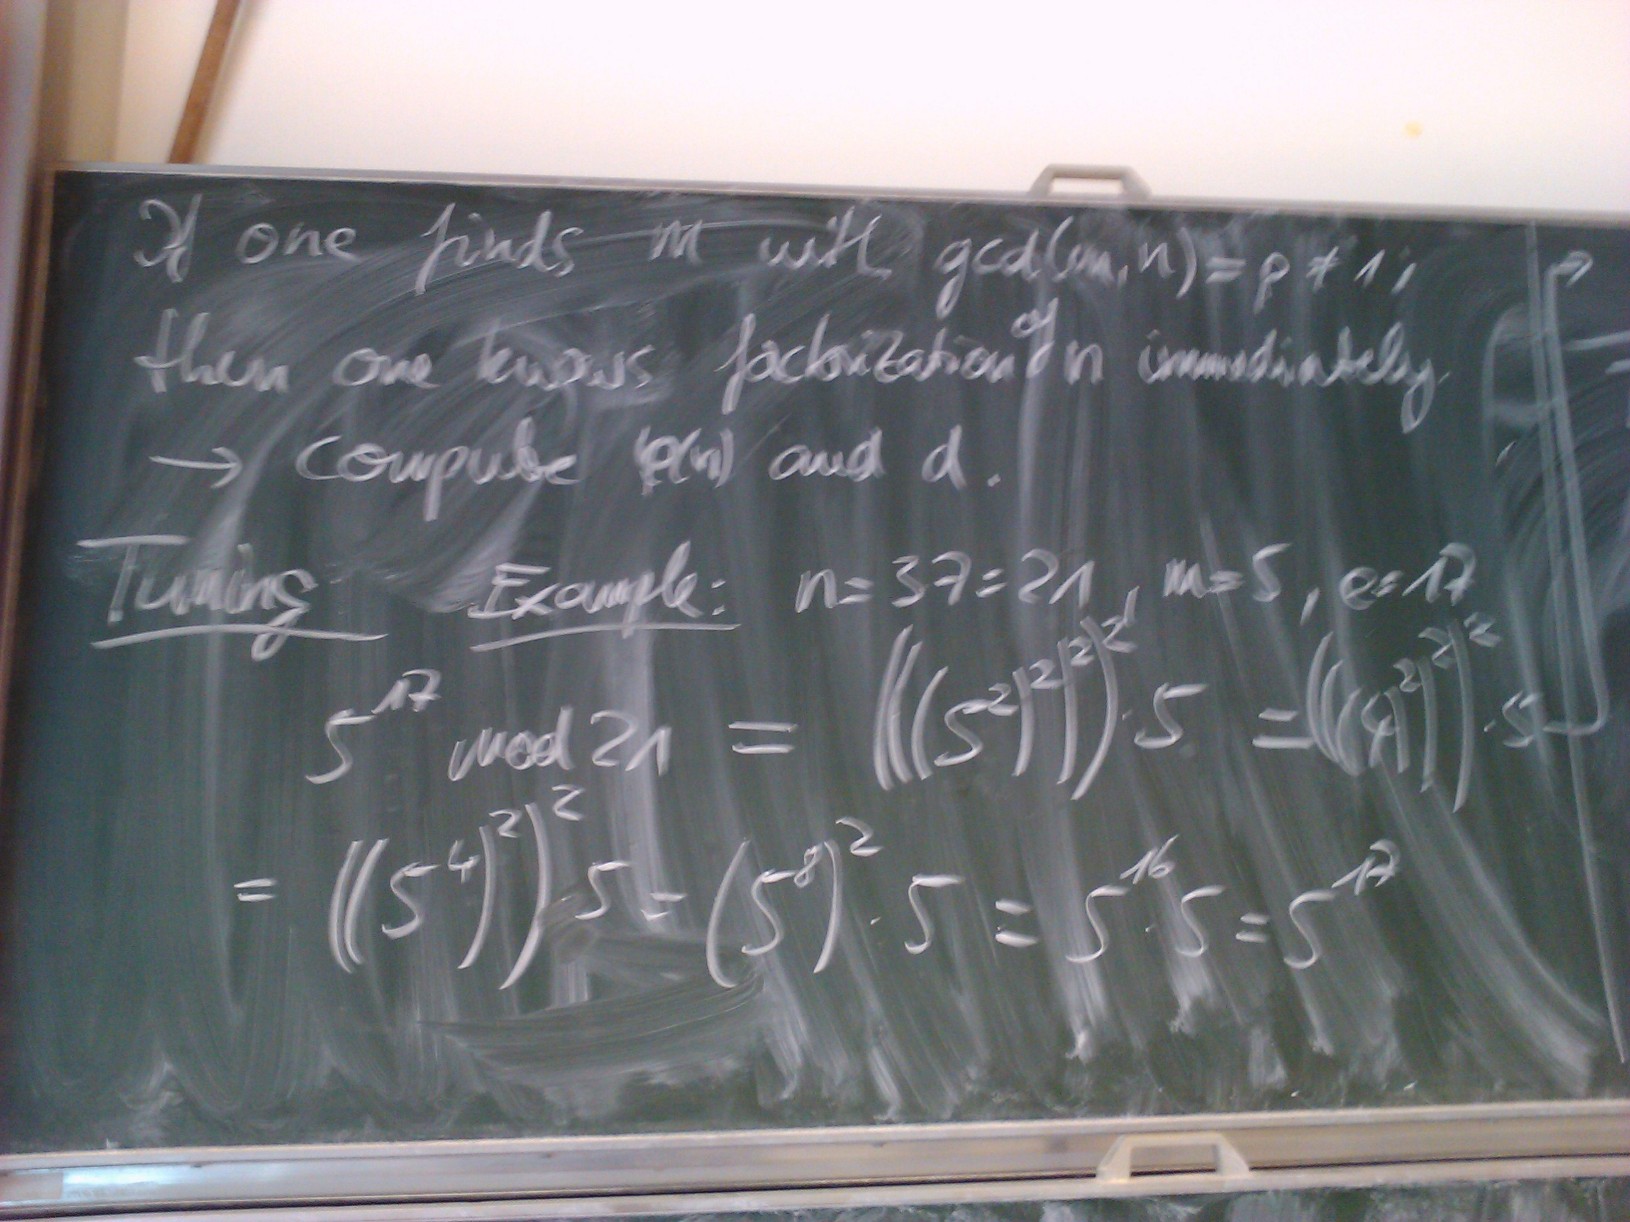 If one finds m with gcd(m,n)=p≠1,
then one knows factorization of n immediately.
→ compute φ(n) and d.
Tuning Example: n=3·7=21, m=5, e=17
5^17 mod 21 = (((5^2)^2)^2)^2·5 = (((4)^2)^2)^2·5
= ((5^4)^2)^2 5 = (5^8)^2·5 = 5^16·5 = 5^17